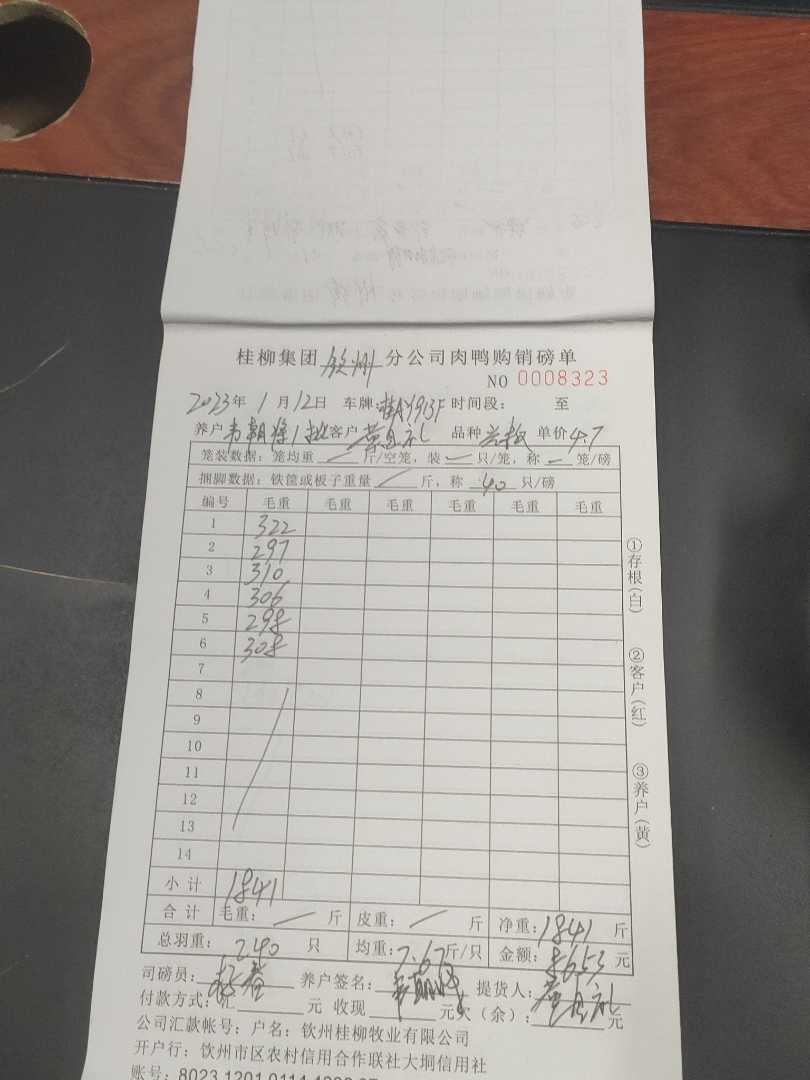 桂柳集团 钦州 分公司肉鸭购销磅单
NO 0008323
2023年 1月 12日 车牌: 桂AY913F 时间段: 至
养户 韦朝 1批 客户 品种 单价 4.7
笼装数据: 笼均重 / 斤/空笼, 装 一 只/笼, 称 一 笼/磅
捆脚数据: 铁筐或板子重量 / 斤, 称 40 只/磅
编号 毛重 毛重 毛重 毛重 毛重 毛重
1 322
2 297
3 310
4 306
5 298
6 308
7
8
9
10
11
12
13
14
小计 1841
合计 毛重: / 斤 皮重: / 斤 净重: 1841 斤
总羽重: 240 只 均重: 7.67 斤/只 金额: 8653 元
司磅员: 养户签名: 提货人:
付款方式: 汇 元 收现 元 欠(余): 元
公司汇款帐号: 户名: 钦州桂柳牧业有限公司
开户行: 钦州市区农村信用合作联社大垌信用社
账号: 8023 1201 0114
①存根(白)
②客户(红)
③养户(黄)